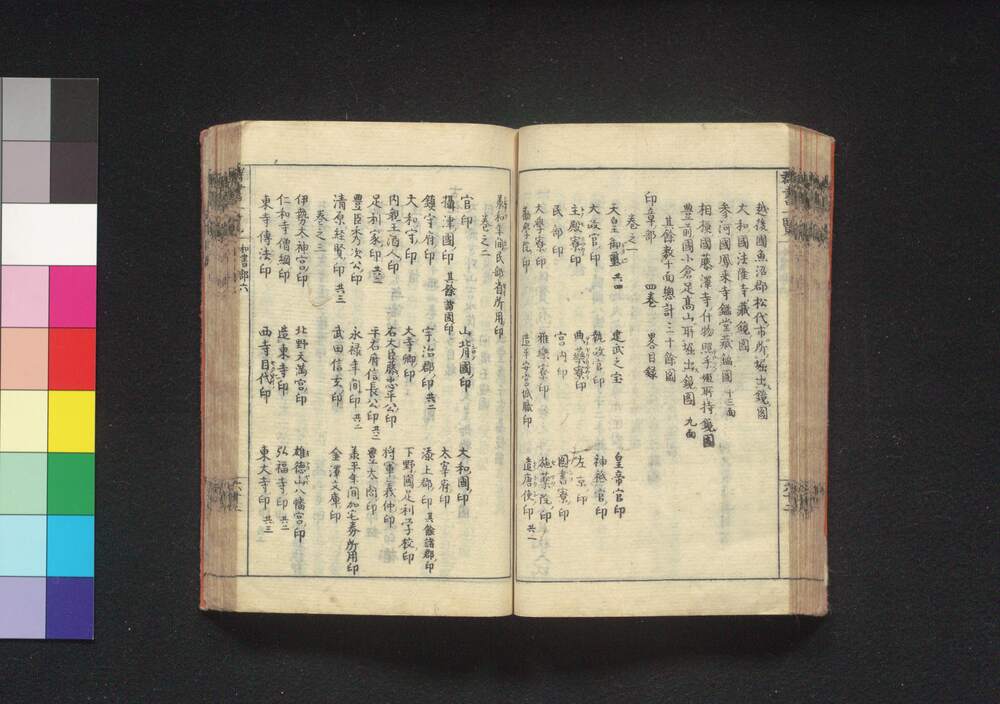 越後國魚沼郡松代市所堀出鏡圖
大和國法隆寺藏鏡圖
參河國鳳来寺鑑堂藏鏡圖 十三面
相模國藤澤寺什物照手姫所持鏡圖
豊前國小倉足髙山所堀出鏡圖 九面
其餘数十面總計三十餘圖
印章部 四巻 畧目録
巻之一
天皇御璽 共四 建武之宝 皇帝官印
太政官印 執政官印 神祇官印
主殿寮印 典藥寮印 左京印
民部印 宮内印 圖書寮印
大學寮印 雅樂寮印 施藥院印
勸學院印 造平安宮城職印 遣唐使印 共一
義和年間民部省所用印
巻之二
官印 山背國印 大和國印
攝津國印 其餘諸國印 太宰府印
鎮守府印 宇治郡印 共二 添上郡印 其餘諸郡印
大和守印 大寺卿印 下野國足利学校印
内親王酒人印 右大臣藤忠平公印 將軍義仲印
足利家印 共二 平右府信長公印 共二 豊太閤印
豊臣秀次公印 永禄年間印 共二 義平年間加宅券所用印
清原経賢印 共三 武田信玄印 金澤文庫印
巻之三
伊勢太神宮印 北野天満宮印 雄徳山八幡宮印
仁和寺僧綱印 造東寺印 弘福寺印 共二
東寺傳法印 西寺目代印 東大寺印 共三
和書部六